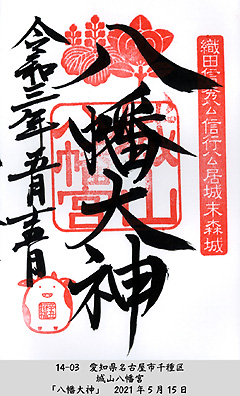 織田信秀公信行公居城末森城
八幡大神
城山八幡宮
令和三年五月十五日
14-03　愛知県名古屋市千種区
城山八幡宮
「八幡大神」　2021年5月15日